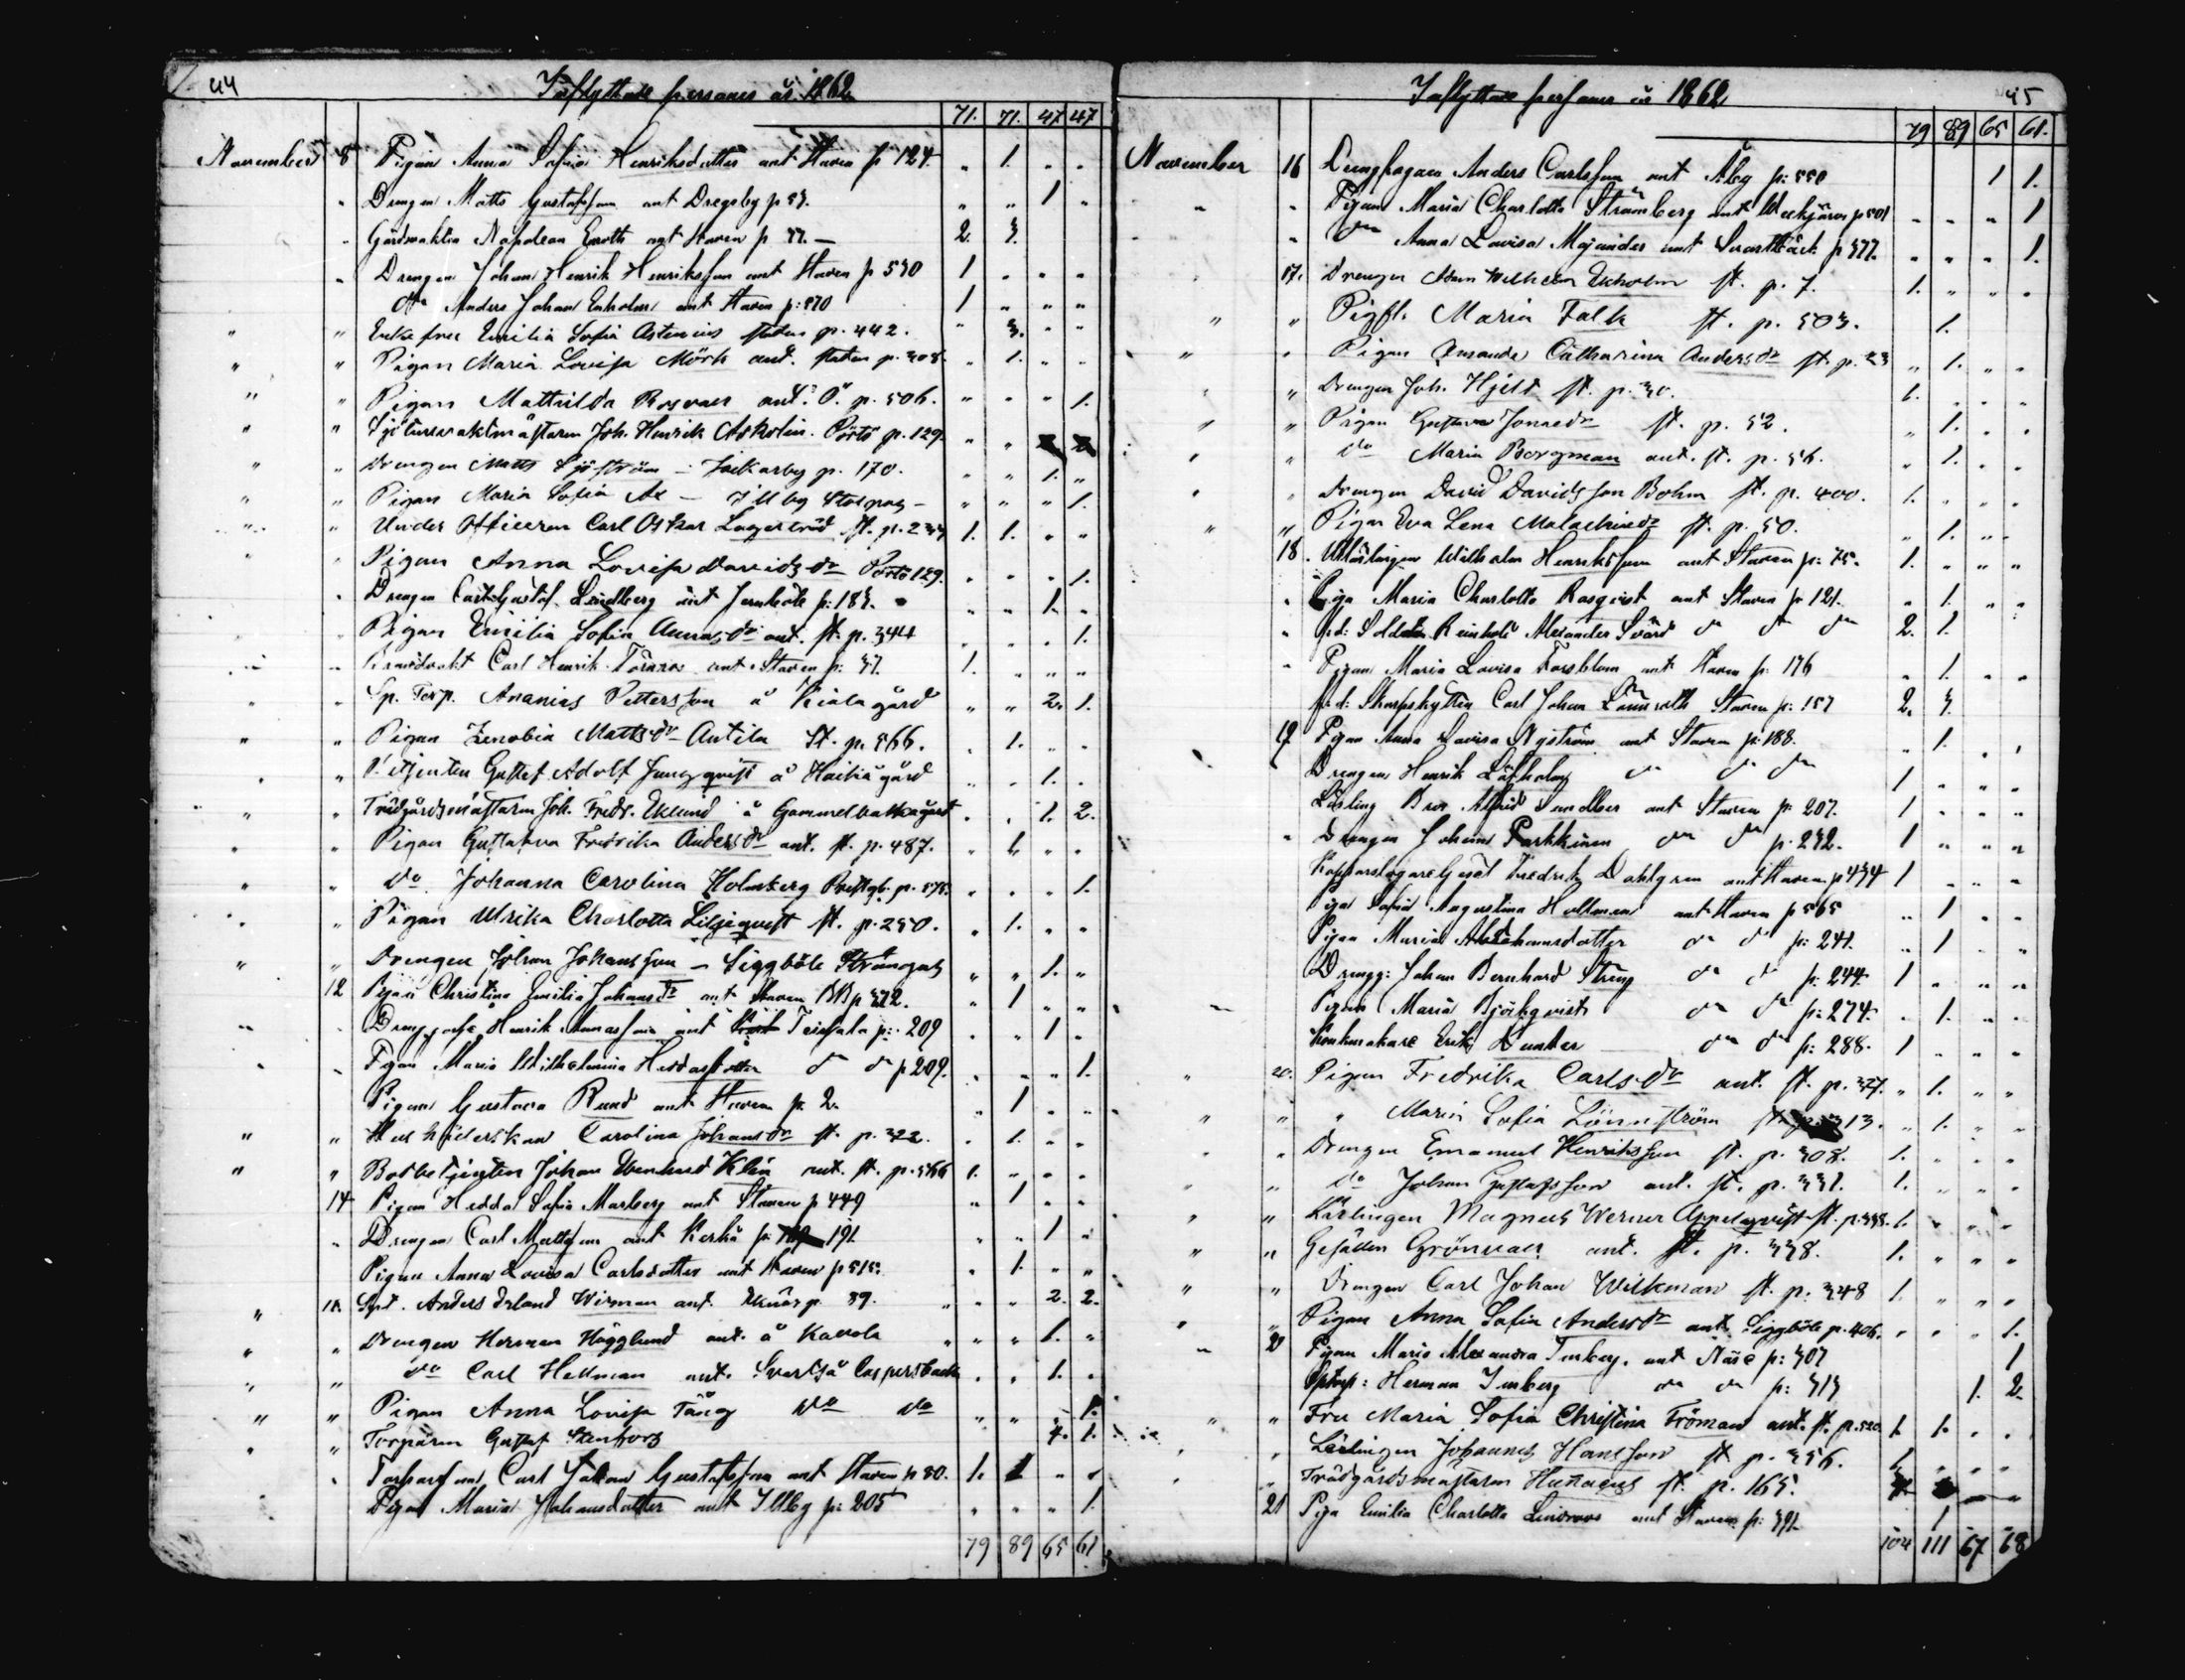 44
Inflyttade personer år 1862
71. 71. 47 47
November 8 Pigan Anna Sofia Henriksdotter ant Staden p 124. " 1. " "
" Drengen Matts Gustafsson ant Dregsby p 53. " " 1 "
" Gårdvaktin Napolean Enroth ant Staden p 2. 3.
" Drengen Johan Henrik Henriksson ant Staden p 530 1 " " "
" do Anders Johan Enholm ant Staden p: 570 1 " " "
" " Enkefru Emilia Sofia Astenius staden p. 442. " 3. " "
" " Pigan Maria Lovisa Mörk ant. staden p. 308. " 1. " "
" " Pigan Mathilda Rosvall ant. p. 506. " " " 1.
" " Joh. Henrik Askolin Pörtö p. 129. " "
" " Drengen Matts Sjöström - Jackarby p. 170. " " 1. "
" " Pigan Maria Sofia Ax - Illby " " " 1.
" " Under Officeren Carl Oskar Lagercrüd St. p. 1. 1. " "
" " Pigan Anna Lovisa Davidsdr Pörtö 129. " " " 1.
" Drengen Carl Gustaf Lindberg ant Jernböle p: 183. " " 1. "
" Pigan Emilia Sofia ant. st. p. 344 " " " 1.
" " Brandvakt Carl Henrik Törnroos ant Staden p: 37. 1. " " "
" " Sp. Torp. Ananias Pettersson å Kiala gård " " 2. 1.
" " Pigan Zenobia Mattsdr Antila St. p. 566. " 1. " "
" " Gustaf Adolf Jungqvist å Haikå gård " " 1. "
" " Trädgårdsmästaren Joh. Fredr. Eklund å Gammelbacka gård " " 1. 2.
" " Pigan Gustafva Fredrika Andersdr ant. st. p. 487. " 1. " "
" " do Johanna Carolina Holmberg p. 575. " " " 1.
" " Pigan Ulrika Charlotta Liljeqvist st. p. 250. " 1. " "
" " Drengen Johan Johansson - Siggböle " " 1. "
12 Pigan Christina Emilia Johansdr ant Staden BB p 372. " 1 " "
" " Henrik ant Treksala p: 209 " " 1 "
" " Pigan Maria Wilhelmina do do p 209. " " " 1.
Pigan Gustava Rund ant Staden p. 2. " 1 " "
" " Carolina Johansdr st. p. 322. " 1. " "
" " Bodbetjenten Johan Klein ant. st. p. 566 1. " " "
14 Pigan Hedda Sofia Marberg ant Staden p 449 " 1 " "
" Drengen Carl Mattsson ant Kerko p: 191 " " 1 "
Pigan Anna Lovisa Carlsdotter ant Staden p 515. " 1. " "
" 15. Anders Erland Wirman ant. p. 89. " " 2. 2.
" " Drengen Herman Högglund ant. å Kavola " " 1. "
" " do Carl Hellman ant. Svartså Caspersback " " 1. "
" " Pigan Anna Lovisa Täng do do " " " 1.
" " Torparen Gustaf Stenfors 4. 1.
" Carl Johan Gustafsson ant Staden p 80. 1. 1 " "
" Pigan Maria Johansdotter ant Illby p: 205 " " " 1.
79 89 65 61
Inflyttade personer år 1862
45
79 89 65 61.
November 16 Anders Carlsson ant Åby p: 550 1 1.
" " Pigan Maria Charlotta Strömberg ant p 501 " " " 1
" " do Anna Lovisa Majander ant Svartbäck p 377. " " " 1.
17. Drengen Adam Wilhelm Ekholm st. p. 7. 1. " " "
" " Maria Falk st. p. 503. 1.
" " Pigan Amanda Catharina Andersdr st. p. 23 " 1. " "
" " Drengen Joh. Hjelt st. p. 30. 1. " " "
" " Pigan Gustava Jonasdr st. p. 52. " 1. " "
" " do Maria Borgman ant. st. p. 56. " 1. " "
" " Drengen David Davidsson Bohm st. p. 400. 1. " " "
" " Pigan Eva Lena Malachiasdr st. p. 50. " 1. " "
18. Wilhelm Henriksson ant Staden p: 75. 1. " " "
" Piga Maria Charlotta Rosqvist ant Staden p 121. " 1. " "
" f.d: Soldaten Reinhold Alexander Svärd do do do 2. 1.
" Pigan Maria Lovisa Forsblom ant Staden p: 176 " 1. " "
f.d: Skarpskyttin Carl Johan Lönnroth Staden p: 157 2. 3.
19 Pigan Anna Lovisa Nyström ant Staden p: 188. " 1. " "
Drengen Henrik Löfholm do do do 1 " " "
Lösling Alfrid Sundber ant Staden p. 207. 1 " " "
" Drengen Johan Parkkinen do do p. 232. 1 " " "
Kopparslagare Gust Fredrik Dahlgren ant Staden p 434 1 " " "
Piga Sofia Augustina Hollmen ant Staden p 565 " 1 " "
Pigan Maria Abrahamsdotter do do p: 241. " 1 " "
Drengg: Johan Bernhard Streng do do p: 244. 1 " " "
Pigan Maria Björkqvist do do p: 274. " 1. " "
Erik Dunker do do p: 288. 1 " " "
" 20. Pigan Fredrika Carlsdr ant. st. p. 327. " 1. " "
" " " Maria Sofia Lönnström st. p. 313. " 1. " "
" " Drengen Emanuel Henriksson st. p. 308. 1. " " "
" " do Johan Gustafsson ant. st. p. 331. 1. " " "
" " Lärlingen Magnus Werner Appelqvist st. p. 338. 1. " " "
" " Gesällen Grönvall ant. st. p. 338. 1. " " "
" " Drengen Carl Johan Wilkman st. p. 348 1. " " "
" " Pigan Anna Sofia Andersdr ant. Siggböle p. 406. " " " 1.
" 20 Pigan Maria Alexandra Tenberg ant Näse p: 307 1
Herman Imberg do do p: 313 1. 2.
" " Fru Maria Sofia Christina Fröman ant. st. p. 520. 1. 1. " "
" " Lärlingen Johannes Hansson st p. 356. 1. " " "
" " Trädgårdsmästaren st. p. 165.
21 Piga Emilia Charlotta Lindroos ant Staden p: 391. 1
104 111 67 68